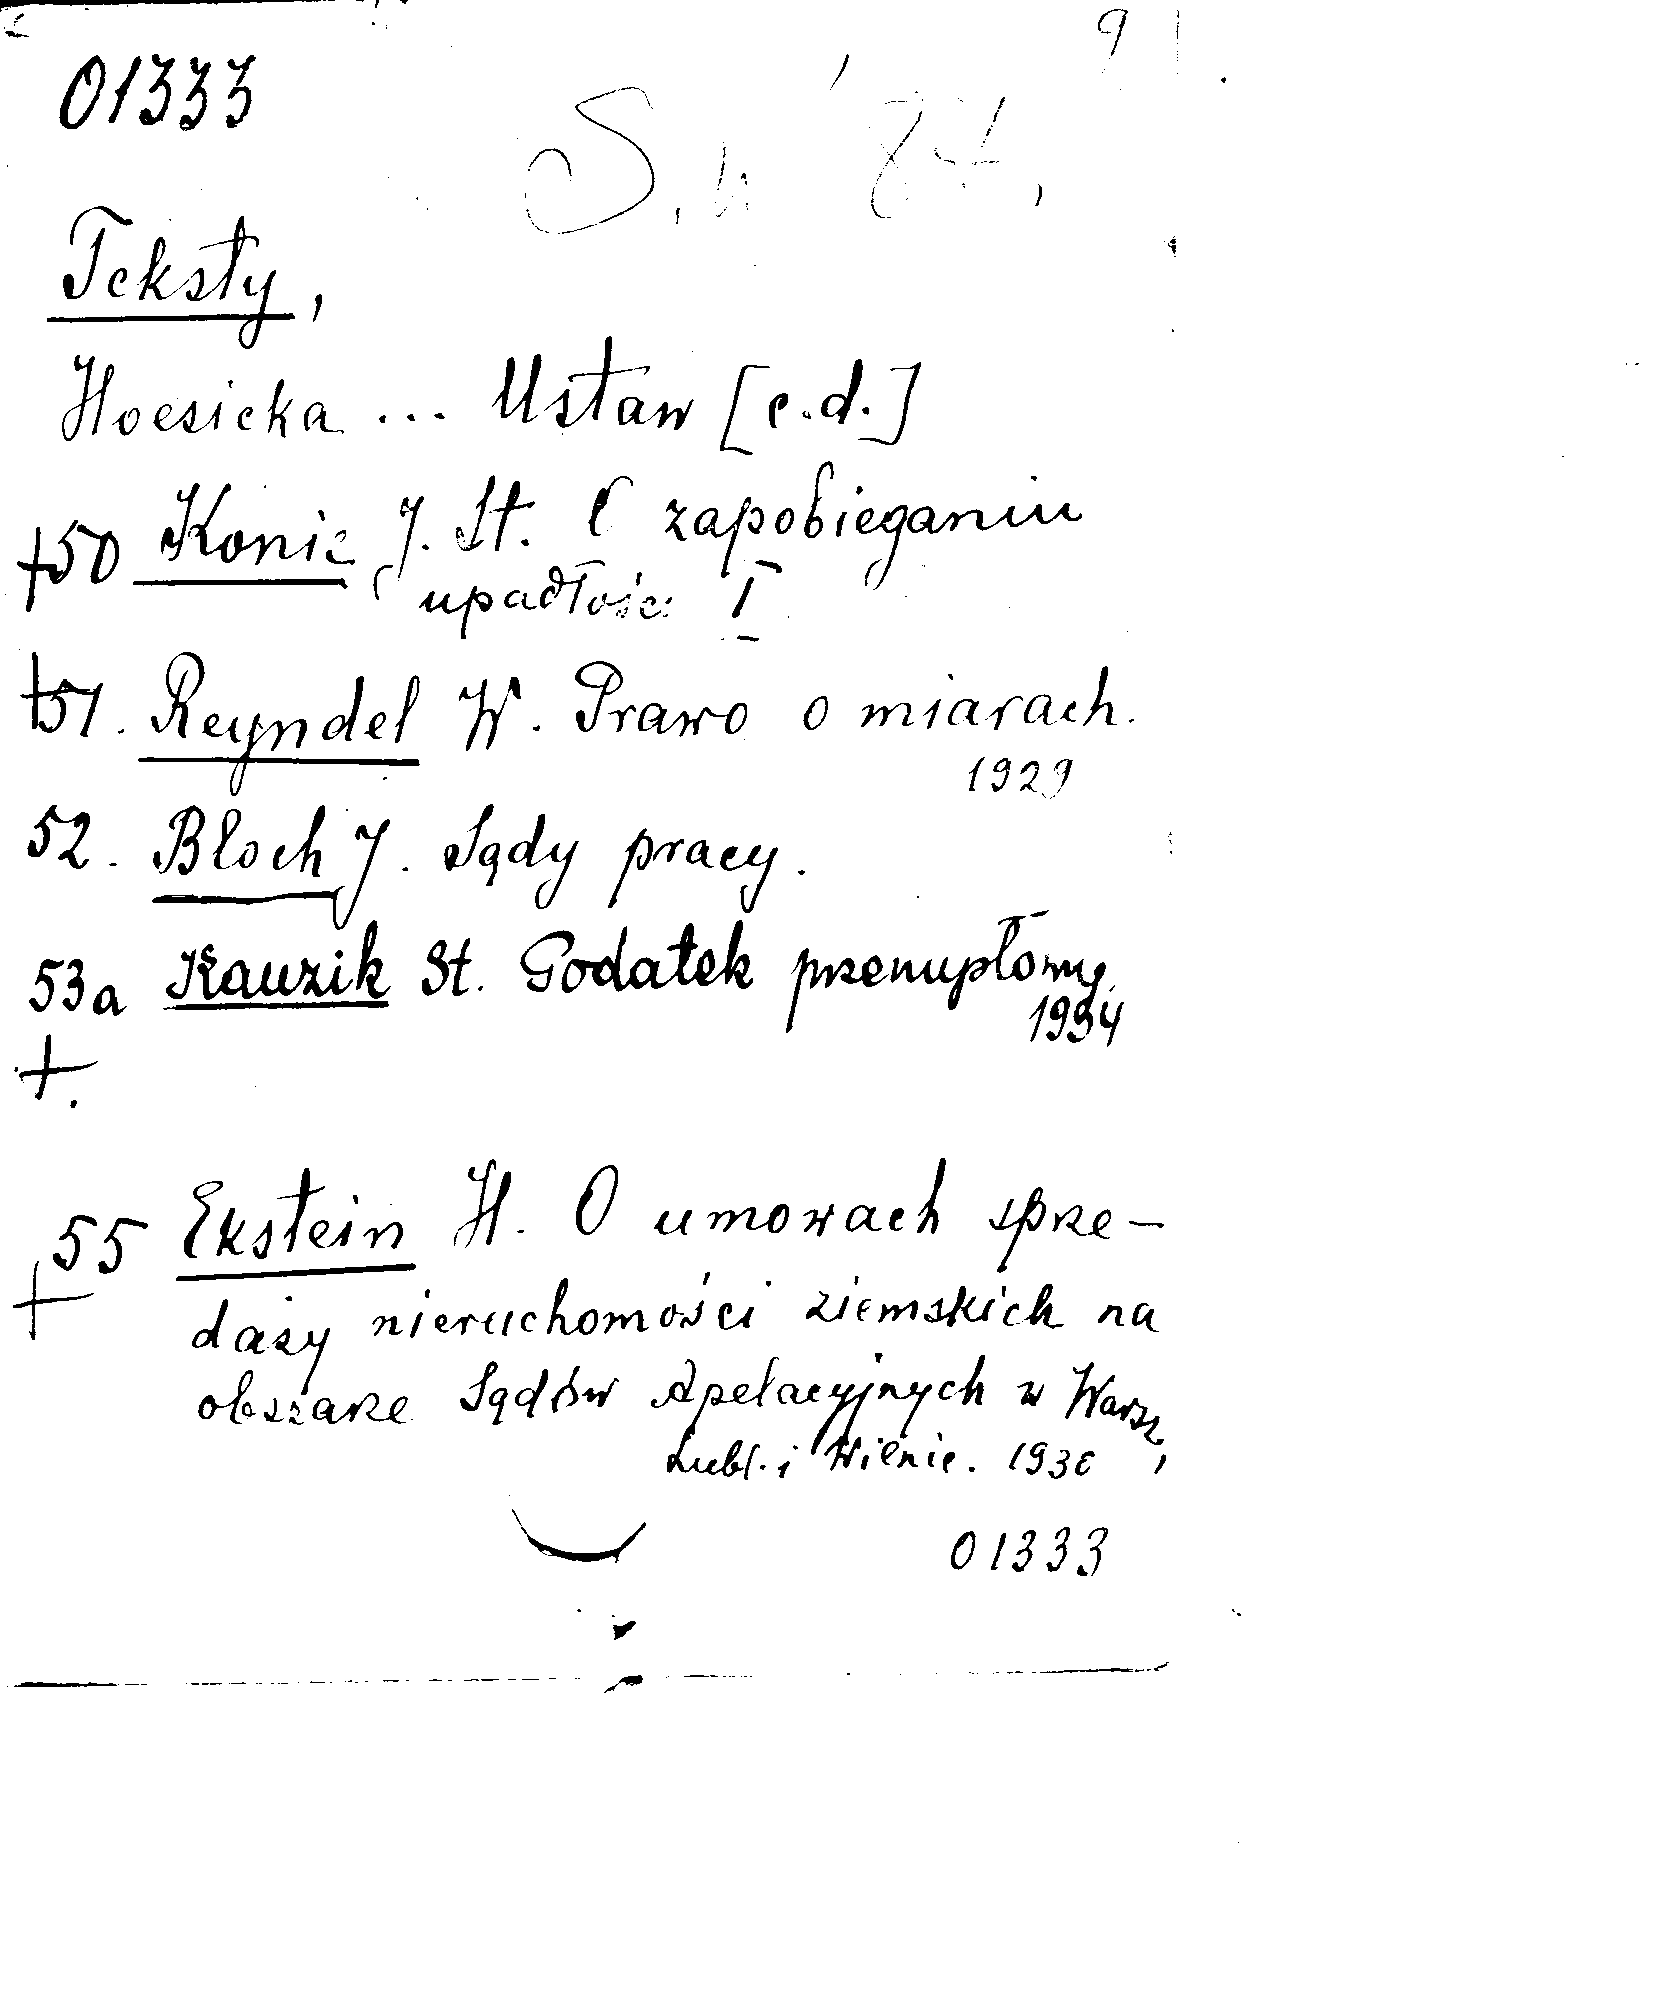 9
01333
Teksty,
Hoesicka ... Ustaw [c.d.]
+50 Konic J. St. O zapobieganiu
upadłości I
+51. Reyndel W. Prawo o miarach.
1929
52. Błoch J. Sądy pracy.
53a Kauzik St. Podatek przemysłowy.
1934
+.
55 Ekstein H. O umowach sprze-
+ daży nieruchomości ziemskich na
obszarze Sądów Apelacyjnych w Warsz,
Lubl. i Wilnie. 1930
01333